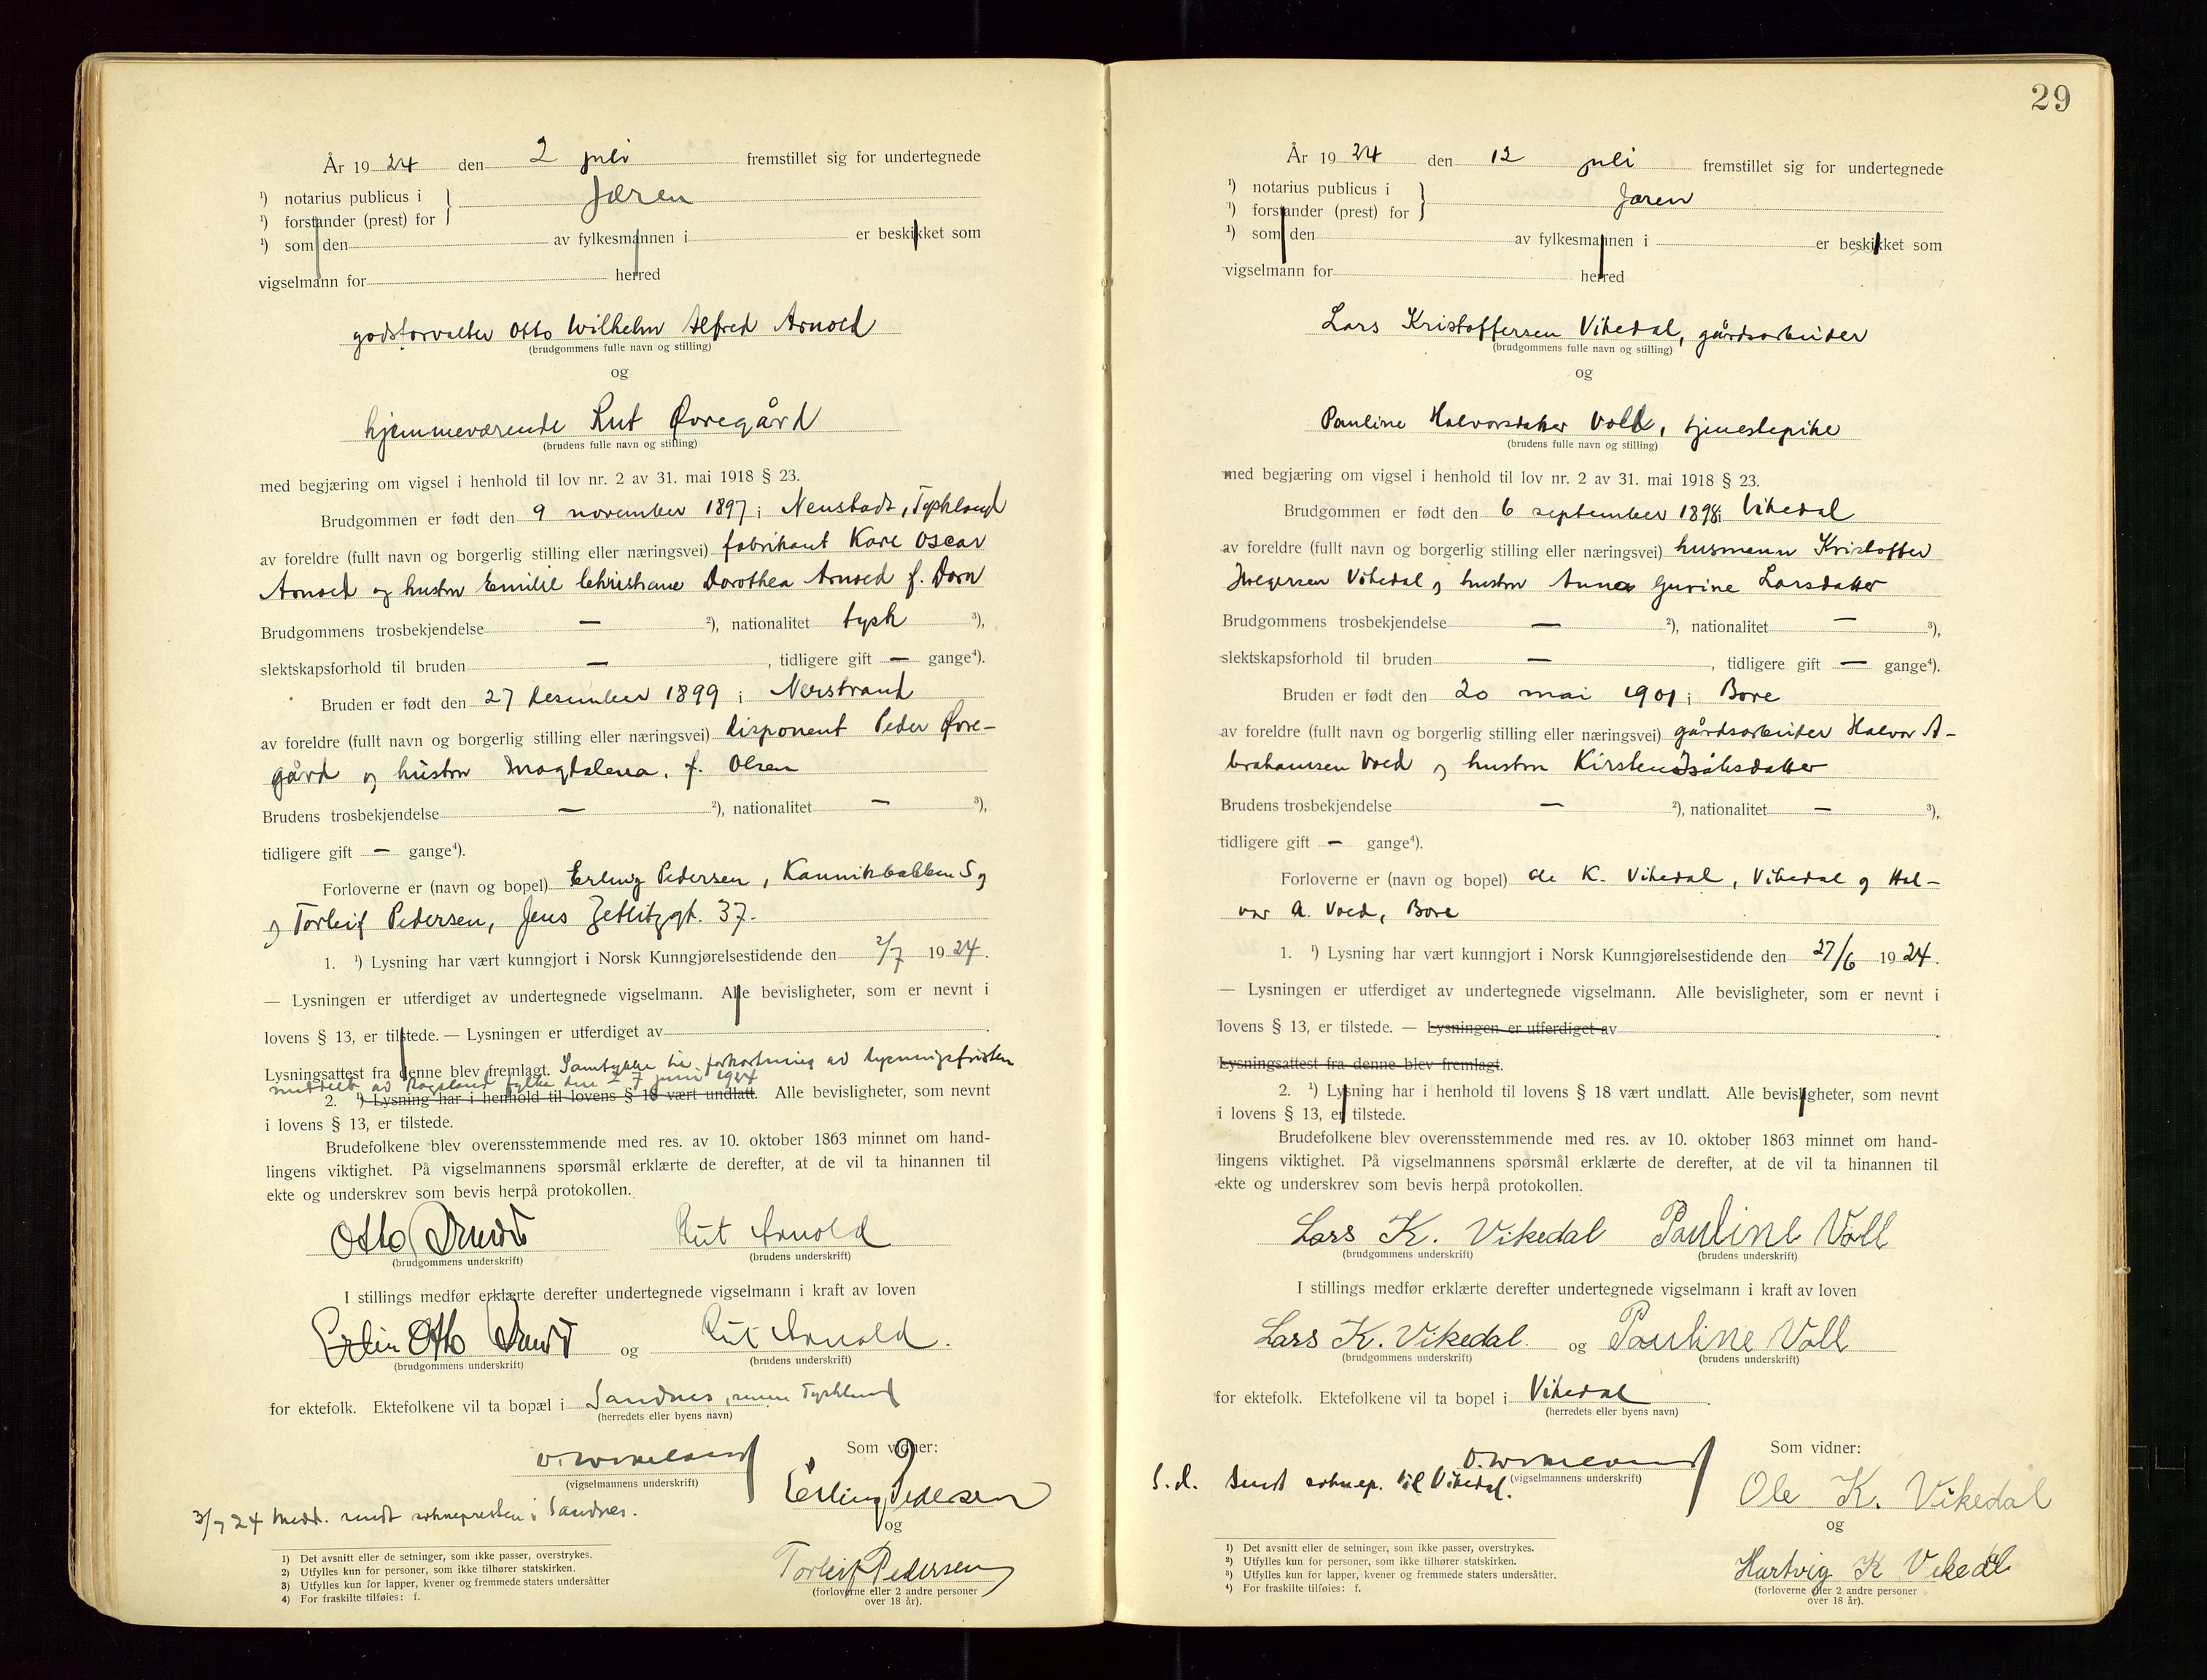 År 1924 den 2 juli fremstillet sig for undertegnede
¹) notarius publicus i } Jæren
¹) forstander (prest) for
¹) som den av fylkesmannen i er beskikket som
vigselmann for herred
godsforvalter Otto Wilhelm Alfred Arnold
(brudgommens fulle navn og stilling)
og
hjemmeværende Rut Øvregård
(brudens fulle navn og stilling)
med begjæring om vigsel i henhold til lov nr. 2 av 31. mai 1918 § 23.
Brudgommen er født den 9 november 1897 i Neustadt, Tyskland
av foreldre (fullt navn og borgerlig stilling eller næringsvei) fabrikant Karl Oscar
Arnold og hustru Emilie Christiane Dorothea Arnold f. Dorn
Brudgommens trosbekjendelse — ²), nationalitet tysk ³),
slektskapsforhold til bruden — , tidligere gift — gange⁴).
Bruden er født den 27 desember 1899 i Nerstrand
av foreldre (fullt navn og borgerlig stilling eller næringsvei) disponent Peder Øvre-
gård og hustru Magdalena, f. Olsen
Brudens trosbekjendelse — ²), nationalitet — ³),
tidligere gift — gange⁴).
Forloverne er (navn og bopel) Erling Pedersen, Kannikbakken 5 og
og Torleif Pedersen, Jens Zetlitzgt. 37.
1. ¹) Lysning har vært kunngjort i Norsk Kunngjørelsestidende den 2/7 1924.
— Lysningen er utferdiget av undertegnede vigselmann. Alle bevisligheter, som er nevnt i
lovens § 13, er tilstede. — Lysningen er utferdiget av .
Lysningsattest fra denne blev fremlagt. Samtykke til forkortning av lysningsfristen
meddelt av Rogaland fylke den 27 juni 1924
2. ¹) Lysning har i henhold til lovens § 18 vært undlatt. Alle bevisligheter, som nevnt
i lovens § 13, er tilstede.
Brudefolkene blev overensstemmende med res. av 10. oktober 1863 minnet om hand-
lingens viktighet. På vigselmannens spørsmål erklærte de derefter, at de vil ta hinannen til
ekte og underskrev som bevis herpå protokollen.
Otto Arnold Rut Arnold
(brudgommens underskrift) (brudens underskrift)
I stillings medfør erklærte derefter undertegnede vigselmann i kraft av loven
Otto Arnold og Rut Arnold.
(brudgommens underskrift) (brudens underskrift)
for ektefolk. Ektefolkene vil ta bopæl i Sandnes, senere Tyskland
(herredets eller byens navn)
Som vidner:
(vigselmannens underskrift)
Erling Pedersen
3/7 24 Medd. sendt soknepresten i Sandnes.
og
Torleif Pedersen
(forloverne eller 2 andre personer
over 18 år).
1) Det avsnitt eller de setninger, som ikke passer, overstrykes.
2) Utfylles kun for personer, som ikke tilhører statskirken.
3) Utfylles kun for lapper, kvener og fremmede staters undersåtter
4) For fraskilte tilføies: f.
29
År 1924 den 12 juli fremstillet sig for undertegnede
¹) notarius publicus i } Jæren
¹) forstander (prest) for
¹) som den av fylkesmannen i er beskikket som
vigselmann for herred
Lars Kristoffersen Vikedal, gårdsarbeider
(brudgommens fulle navn og stilling)
og
Pauline Halvorsdatter Voll, tjenestepike
(brudens fulle navn og stilling)
med begjæring om vigsel i henhold til lov nr. 2 av 31. mai 1918 § 23.
Brudgommen er født den 6 september 1898 i Vikedal
av foreldre (fullt navn og borgerlig stilling eller næringsvei) husmann Kristoffer
Holgersen Vikedal og hustru Anna Gurine Larsdatter
Brudgommens trosbekjendelse — ²), nationalitet — ³),
slektskapsforhold til bruden — , tidligere gift — gange⁴).
Bruden er født den 20 mai 1901 i Bore
av foreldre (fullt navn og borgerlig stilling eller næringsvei) gårdsarbeider Halvor A-
brahamsen Voll og hustru Kirsten Isaksdatter
Brudens trosbekjendelse — ²), nationalitet — ³),
tidligere gift — gange⁴).
Forloverne er (navn og bopel) Ole K. Vikedal, Vikedal og Hal-
vor A. Voll, Bore
1. ¹) Lysning har vært kunngjort i Norsk Kunngjørelsestidende den 27/6 1924.
— Lysningen er utferdiget av undertegnede vigselmann. Alle bevisligheter, som er nevnt i
lovens § 13, er tilstede. — Lysningen er utferdiget av .
Lysningsattest fra denne blev fremlagt.
2. ¹) Lysning har i henhold til lovens § 18 vært undlatt. Alle bevisligheter, som nevnt
i lovens § 13, er tilstede.
Brudefolkene blev overensstemmende med res. av 10. oktober 1863 minnet om hand-
lingens viktighet. På vigselmannens spørsmål erklærte de derefter, at de vil ta hinannen til
ekte og underskrev som bevis herpå protokollen.
Lars K. Vikedal Pauline Voll
(brudgommens underskrift) (brudens underskrift)
I stillings medfør erklærte derefter undertegnede vigselmann i kraft av loven
Lars K. Vikedal. og Pauline Voll
(brudgommens underskrift) (brudens underskrift)
for ektefolk. Ektefolkene vil ta bopel i Vikedal .
(herredets eller byens navn)
Som vidner:
(vigselmannens underskrift)
S.d. Sendt soknep. til Vikedal.
Ole K. Vikedal
og
Hartvig K Vikedal
(forloverne eller 2 andre personer
over 18 år).
1) Det avsnitt eller de setninger, som ikke passer, overstrykes.
2) Utfylles kun for personer, som ikke tilhører statskirken.
3) Utfylles kun for lapper, kvener og fremmede staters undersåtter.
4) For fraskilte tilføies: f.